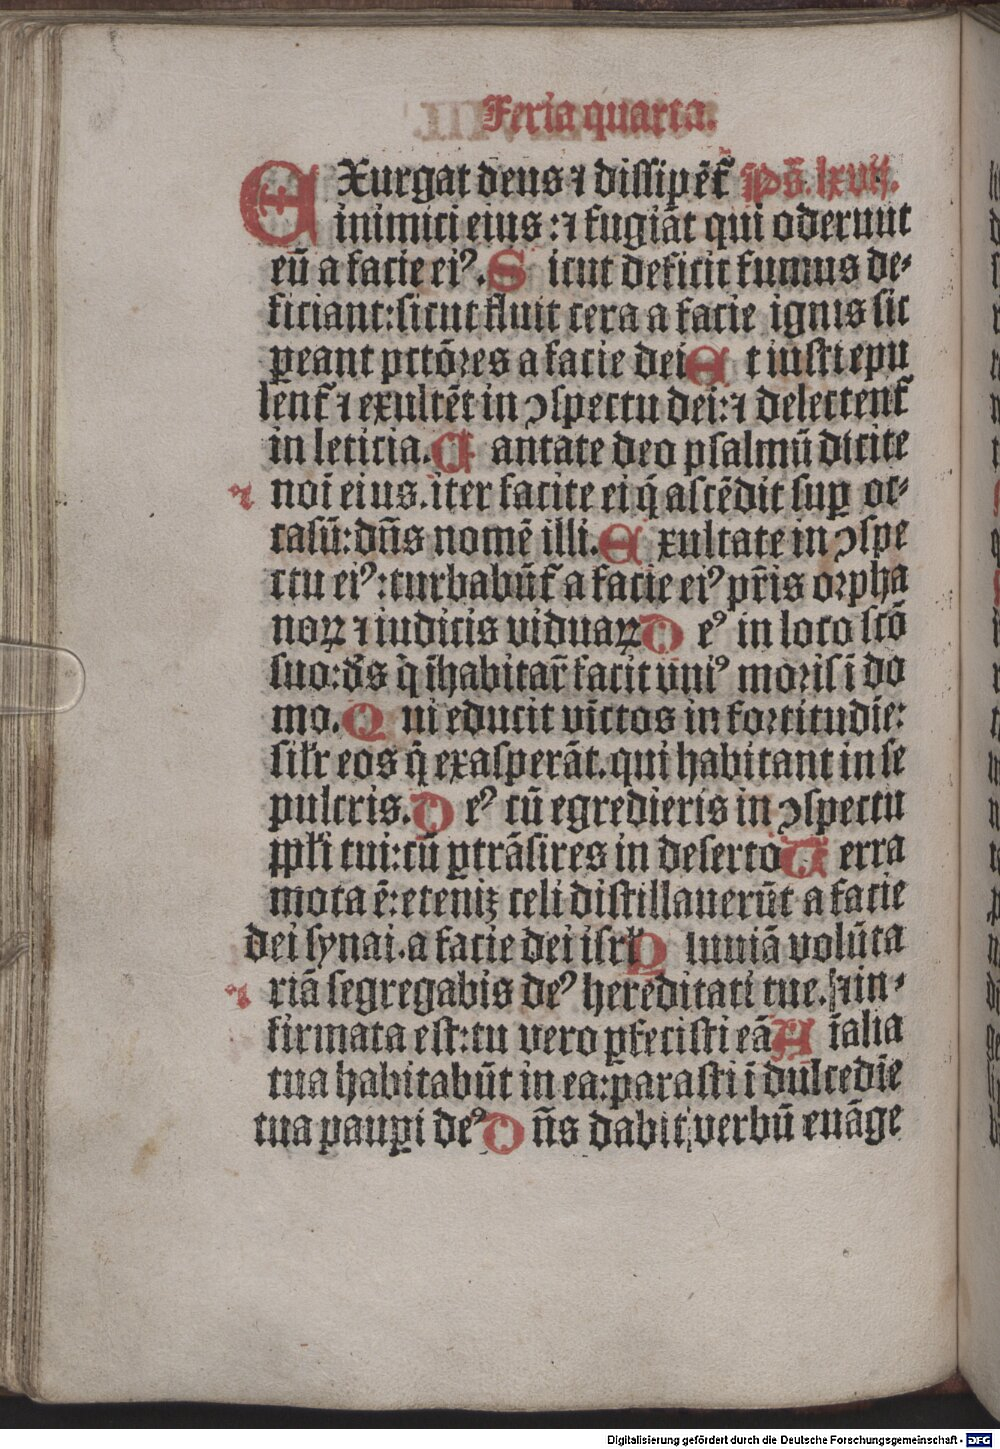 Feria quarta.
EXurgat deus ⁊ dissipēt᷑ Ps̄. lxvij.
inimici eius: ⁊ fugiāt qui oderunt
eū a facie eiꝰ. Sicut deficit fumus de⸗
ficiant: sicut fluit cera a facie ignis sic
ꝑeant pctōꝛes a facie dei Et iusti epu
lent᷑ ⁊ exultēt in ↄspectu dei: ⁊ delectent᷑
in leticia. Cantate deo psalmū dicite
noī eius. iter facite ei q̄ ascēdit suꝑ oc⸗
casū: dn̄s nomē illi. Exultate in ↄspe
ctu eiꝰ: turbabūt᷑ a facie eiꝰ pr̄is oꝛpha
noꝝ ⁊ iudicis viduaꝝ Deꝰ in loco scō
suo: ds̄ q̇ īhabitar̄ facit vniꝰ moꝛis ī do
mo. Qui educit vīctos in foꝛtitudīe:
sil̄r eos q̇ exasperāt. qui habitant in se
pulcris. Deꝰ cū egredieris in ↄspectu
ppl̄i tui: cū ꝑtrāsires in deserto Terra
mota ē: eteniꝫ celi distillauerūt a facie
dei synai. a facie dei isrl̄ Pluuiā volūta
riā segregabis deꝰ hereditati tue. ⁊ in⸗
firmata est: tu vero ꝑfecisti eā Aīalia
tua habitabūt in ea: parasti ī dulcedīe
tua pauꝑi deꝰ Dn̄s dabit verbū euāge
Digitalisierung gefördert durch die Deutsche Forschungsgemeinschaft - DFG